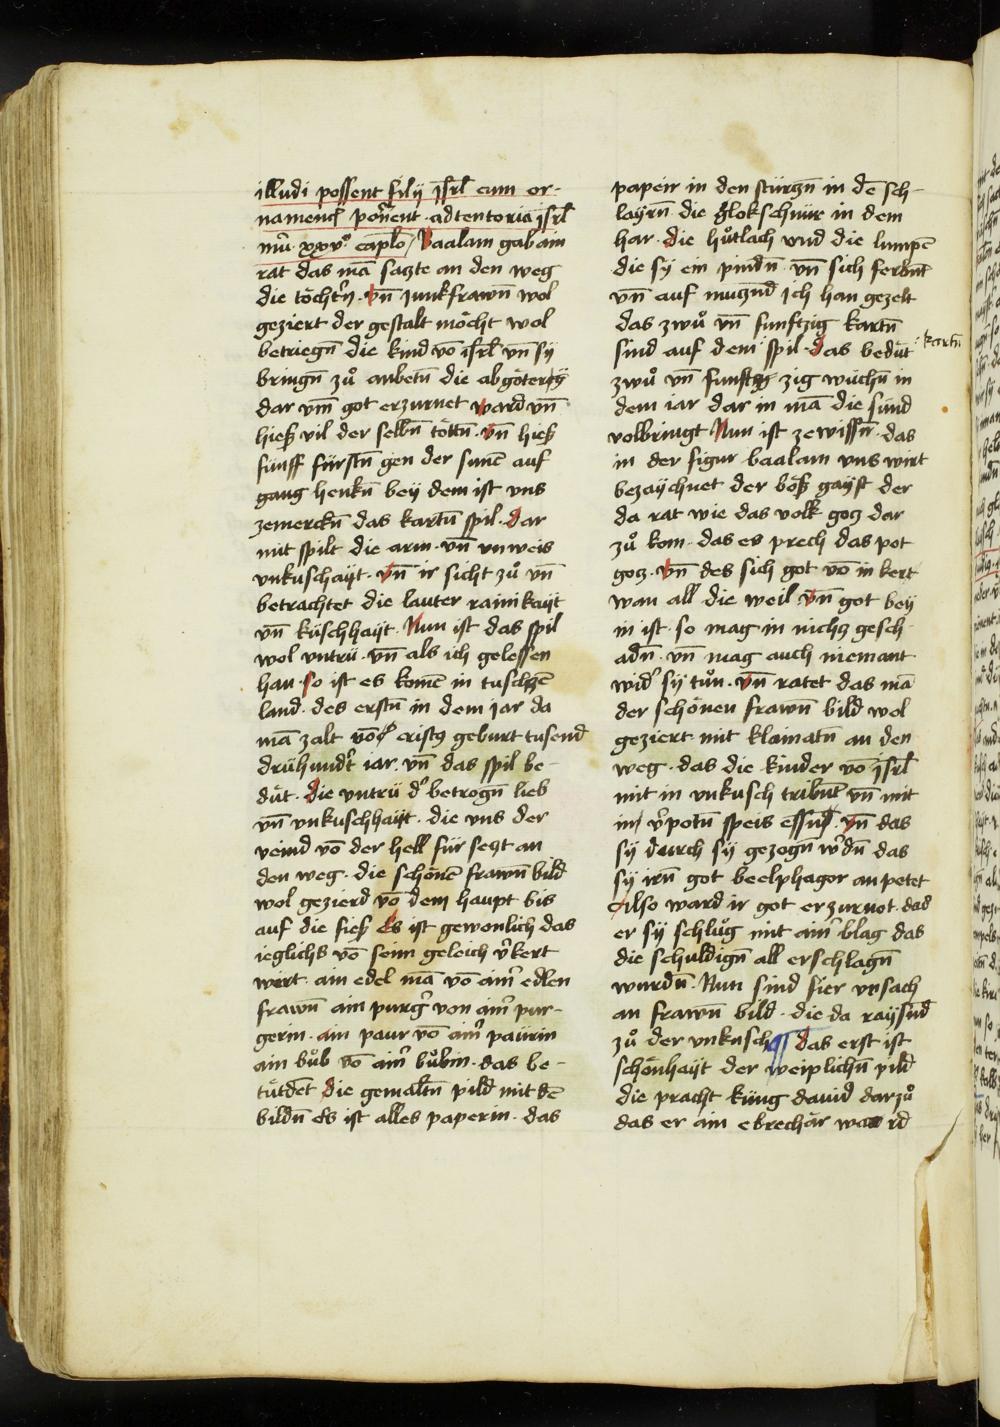 illudi possent filij isrl̄ cum or-
namenct̄ pon̄ent · ad tentoria isrl̄
mū · xxv° · caplo / Baalam gab ain
rat das mā saczte an den weg
die töcht'n · vn̄ junkfrawn̄ wol
geziert der gestalt möcht wol
betriegn̄ die kind vō isrl̄ vn̄ sy
bringn̄ zů anbetn̄ die abgöterey
dar vm̄ got erzurnet ward vn̄
hieß vil der selbn̄ töttn̄ · vn̄ hieß
fünff fürstn̄ gen der sunē auf
gang henkn̄ bey dem ist vns
zemerckn̄ das kartn̄ spil · dar
mit spilt die arm · vn̄ vnweis
vnkuschayt · vn̄ ir sicht zů vn̄
betrachtet die lauter rainikayt
vn̄ küschhayt · Nun ist das spil
wol vntrü · vn̄ als ich gelessen
han · so ist es komē in tuschen
land · des erstn̄ in dem jar da
mā zalt vō cristz geburt tusend
drühundr̄t iar · vn̄ das spil be-
düt · die vntrü d' betrogn̄ lieb
vn̄ vnkuschhayt · die vns der
veind vō der hell für seczt an
den weg · die schönē frawn̄ bild
wol gezierd vō dem haupt bis
auf die fieß Es ist gewonlich das
ieglichs vō seim geleich v'kert
wert · ain edel mā vō aim' edlen
frawn̄ ain purg' von aim' pur-
gerin · ain paur vō aim' paürin
ain bůb vō aim' bůbin · das be-
tütdet die gemaltn̄ pild mit dē
bildn̄ Es ist alles paperin · das
papeir in den stürczn̄ in dē sch-
layrn̄ die glokschnür in dem
har · die hůtlach vnd die lumpē
die sy ein pindn̄ · vn̄ sich
vn̄ auf muczn̄d ich han gezelt
das zwů vn̄ funftzig kartn̄
sind auf dem spil · das bedüt · kartn̄
zwů vn̄ funft zig wüchn̄ in
dem iar dar in mā die sünd
volbringt Nun ist zewissn̄ · das
in der figur baalam vns wirt
bezaychnet der böß gayst der
da rat wie das volk gocz dar
zů kom · das es prech das pot
gocz · vn̄ des sich got vō in kert
wan all die weil · vn̄ got bey
in ist · so mag in nichcz gesch-
adn̄ · vn̄ mag auch niemant
wid' sy tůn · vn̄ ratet das mā
der schönen frawn̄ bild wol
geziert mit klainatn̄ an den
weg · das die kinder vō isrl̄
mit in vnkusch tribnt vn̄ mit
in v'potn̄ speis essn̄d · vn̄ das
sy durch sy gezogn̄ w'dn̄ das
sy irn̄ got beelphagor an petet
Also ward ir got erzurnot · das
er sy schlůg mit ain' blag das
die schuldign̄ all erschlagn̄
wurdn̄ · Nun sind fier vrsach
an frawn̄ bild · die da raysn̄d
zů der vnkusch ¶ das erst ist
schönhayt der weiplichn̄ pild
die pracht küng dauid darzů
das er ain ebrechär wa rd